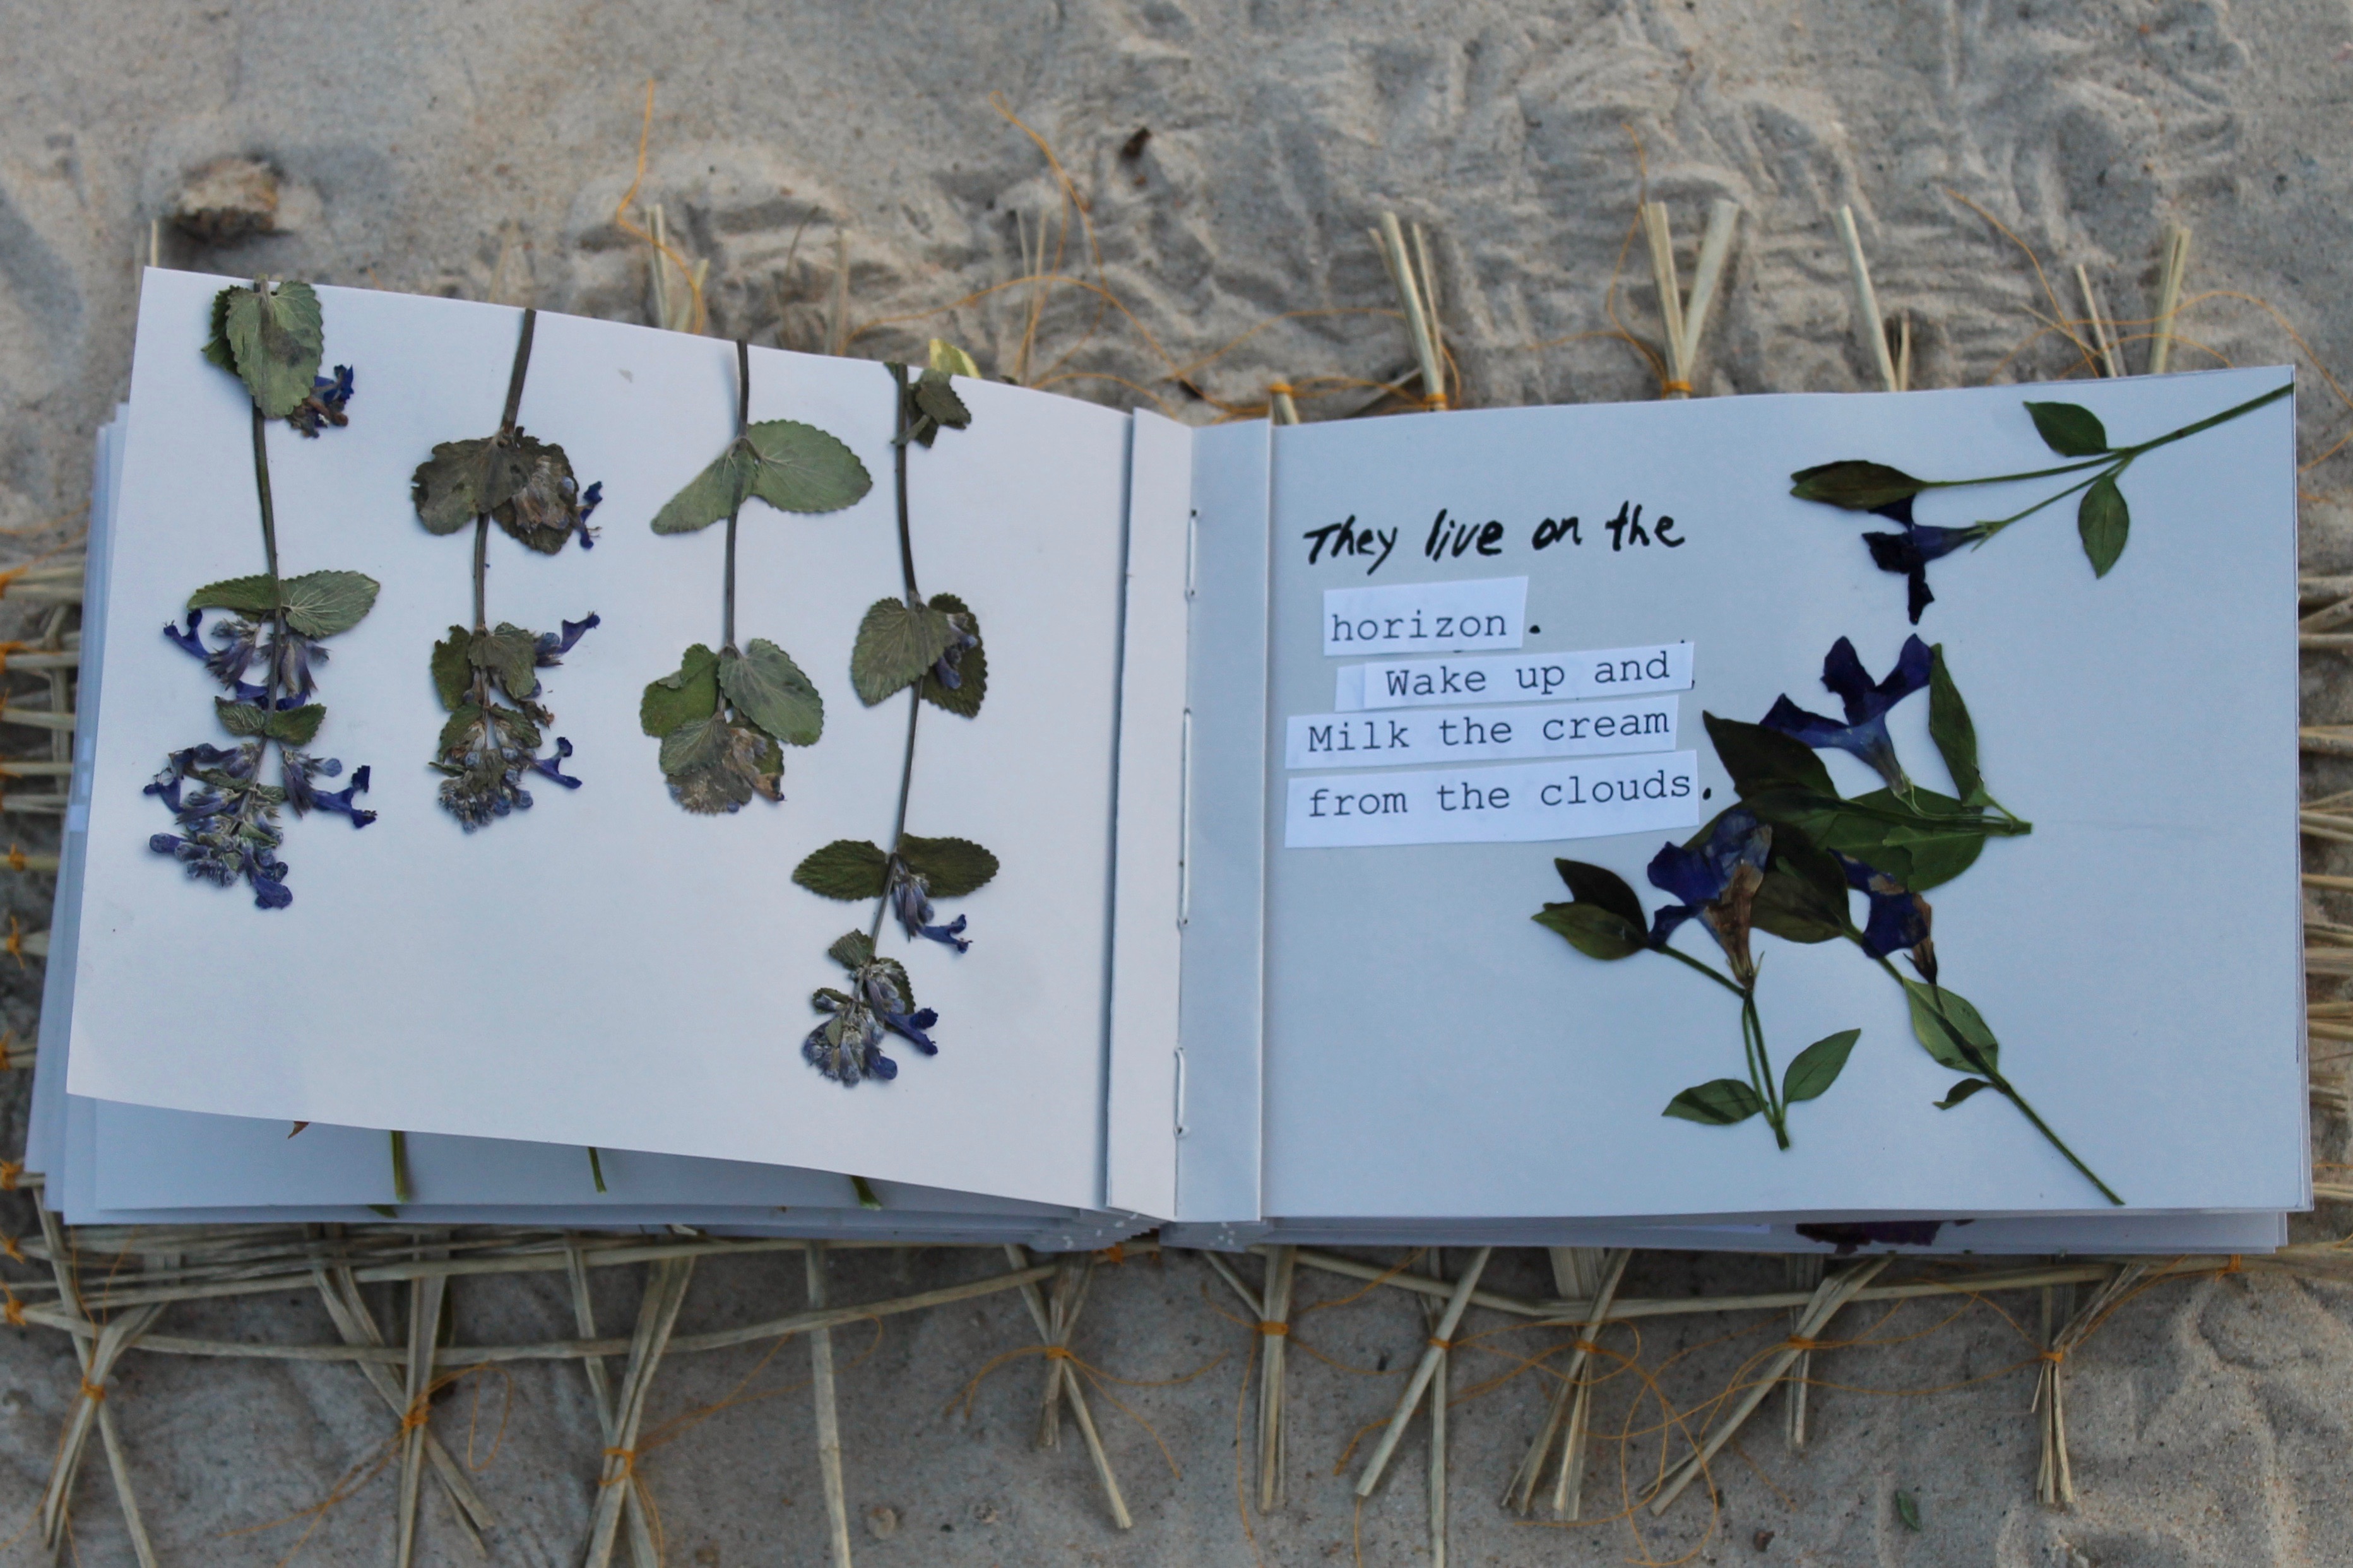 They live on the
horizon.
Wake up and
Milk the cream
from the clouds.